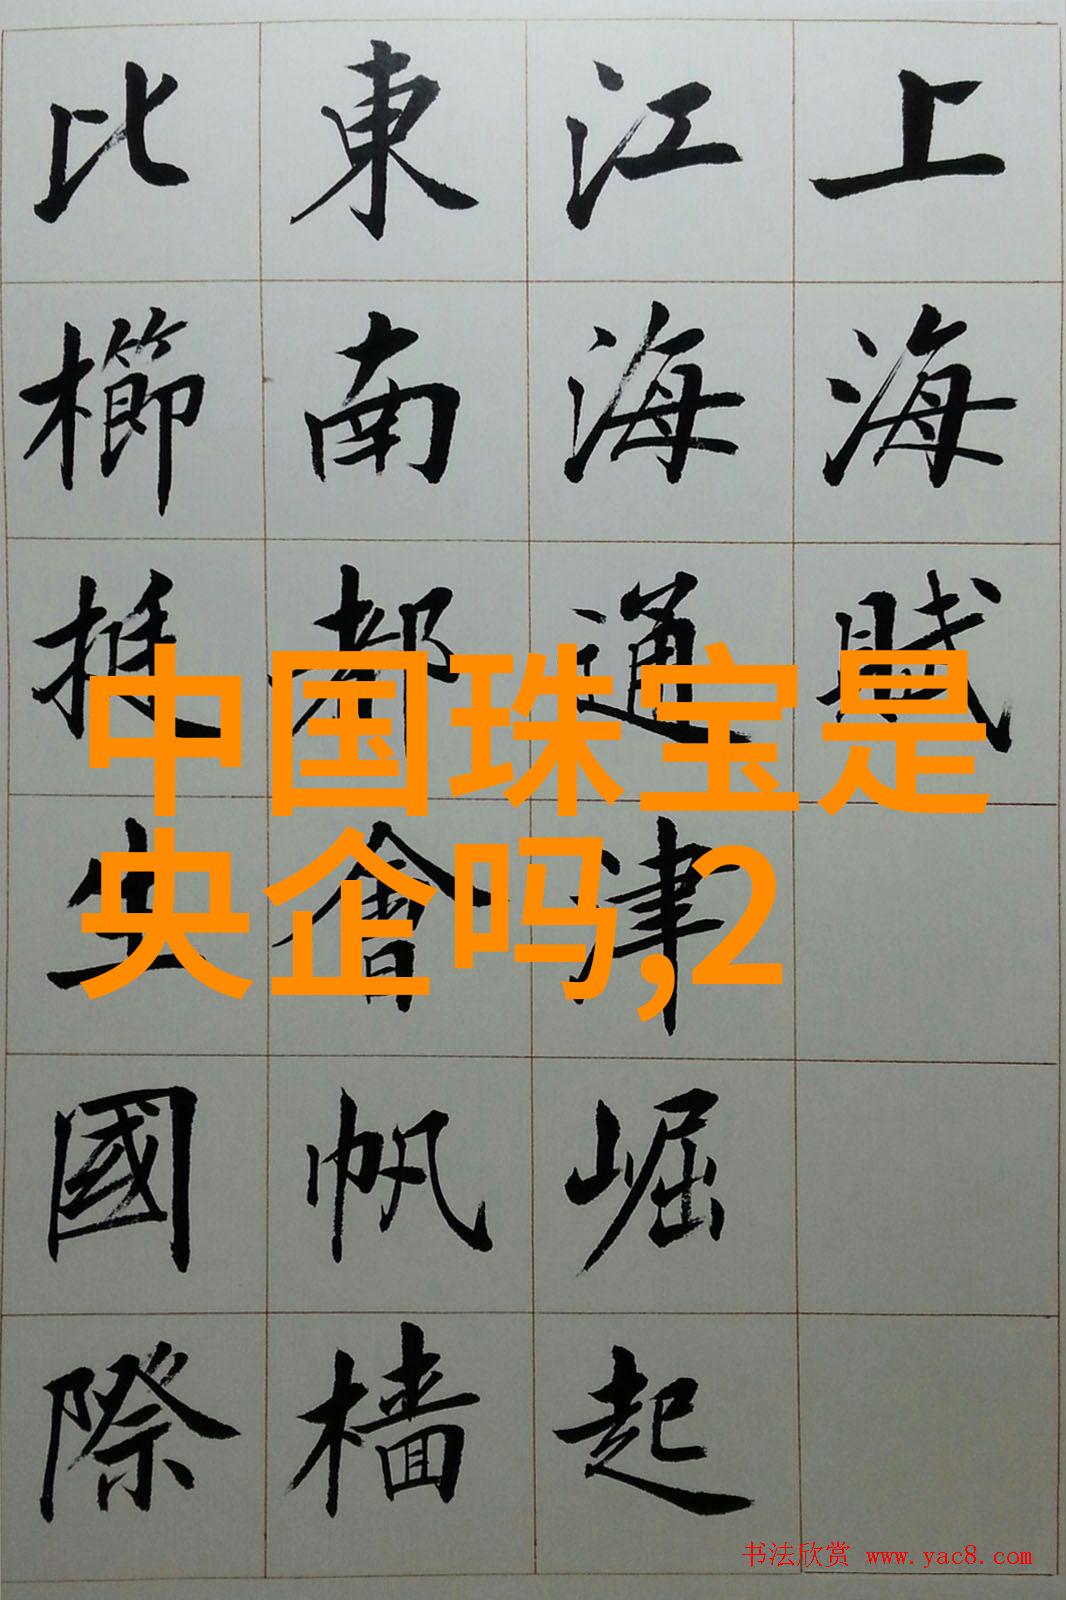 上海賦
江海通津崛起
東南都會帆檣
比櫛挺生國際
中国珠宝是
央企吗,2
书法欣赏 www.yac8.com